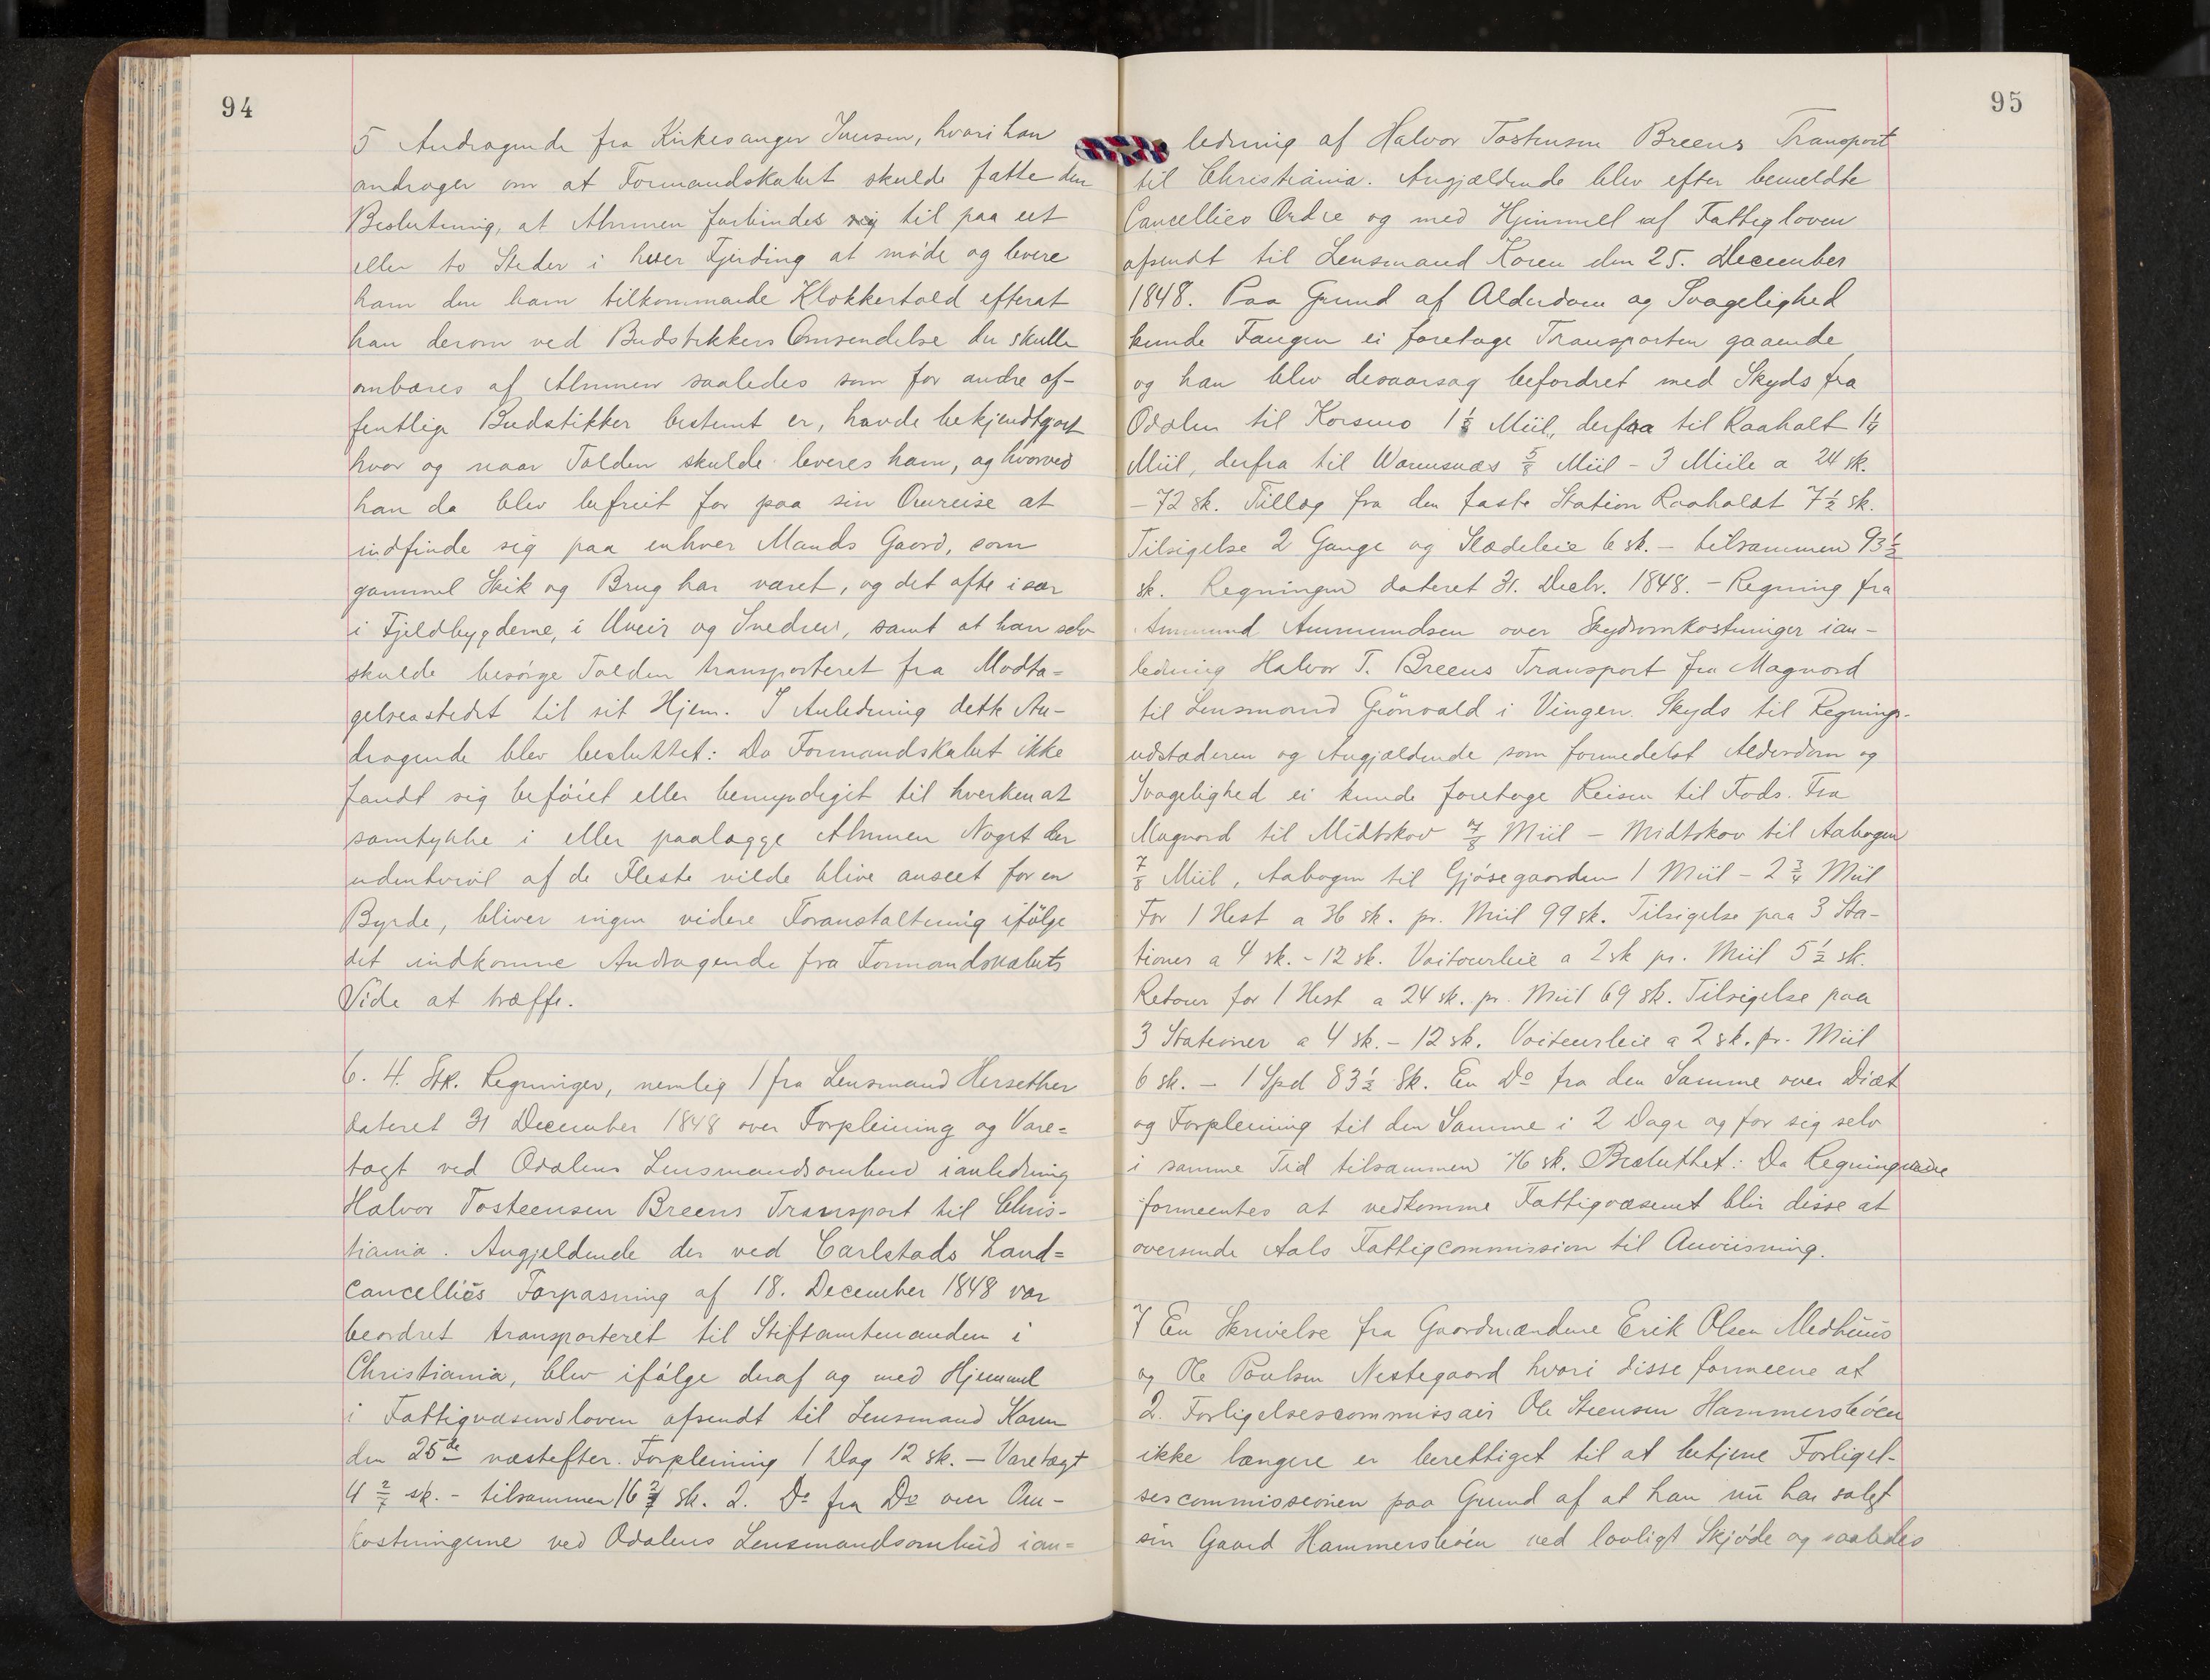 94
5 Andragende fra Kirkesanger Iversen, hvori han
andrager om at Formandskabet skulde fatte den
Beslutning, at Almuen forbindes sig til paa eet
eller to Steder i hver Fjerding at møde og levere
ham den ham tilkommende Klokkertold efterat
han derom ved Budstikkers Omsendelse der skulle
ombæres af Almuen saaledes som for andre of-
fentlige Budstikker bestemt er, havde bekjendtgjort
hvor og naar Tolden skulde leveres ham, og hvorved
han da blev befriet for paa sin Omreise at
indfinde sig paa enhver Mands Gaard, som
gammel Skik og Brug har været, og det ofte især
i Fjeldbygderne, i Uveir og Snedrev, samt at han selv
skulde besørge Tolden transporteret fra Modta=
gelsesstedet til sit Hjem. I Anledning dette An-
dragende blev besluttet: Da Formandskabet ikke
fandt sig beføiet eller bemyndiget til hverken at
samtykke i eller paalægge Almuen Noget der
udentvivl af de Fleste vilde blive anseet for en
Byrde, bliver ingen videre Foranstaltning ifølge
det indkomne Andragende fra Formandskabets
Side at træffe.
6. 4. Stk. Regninger, nemlig 1 fra Lensmand Hersether
dateret 31 December 1848 over Forpleining og Vare=
tægt ved Odalens Lensmandsombud ianledning
Halvor Tosteensen Breens Transport til Chris-
tiania. Angjeldende der ved Carlstads Land=
cancelliés Forpasning af 18. December 1848 var
beordret transporteret til Stiftamtmanden i
Christiania, blev ifølge deraf og med Hjemmel
i Fattigvæsensloven afsendt til Lensmand Koren
den 25de næstefter. Forpleining 1 Dag 12 sk. — Varetægt
4 2/7 sk. - tilsammen 16 2/7 sk. 2. Do fra Do over Om-
kostningerne ved Odalens Lensmandsombud ian=
95
ledning af Halvor Tostensen Breens Transport
til Christiania. Angjældende blev efter bemeldte
Cancellies Ordre og med Hjemmel af Fattigloven
afsendt til Lensmand Koren den 25. December
1848. Paa Grund af Alderdom og Svagelighed
kunde Fangen ei foretage Transporten gaaende
og han blev desaarsag befordret med Skyds fra
Odalen til Korsmo 1 1/8 Miil, derfra til Raaholt 1 1/4
Miil, derfra til Wormsnæs 5/8 Miil - 3 Miile a 24 sk.
- 72 sk. Tillæg fra den faste Station Raaholdt 7 1/2 sk.
Tilsigelse 2 Gange og Slædeleie 6 sk. - tilsammen 93 1/2
sk. Regningen dateret 31. Decbr. 1848. - Regning fra
Ammund Ammundsen over Skydsomkostninger ian-
ledning Halvor T. Breens Transport fra Magnord
til Lensmand Grönvald i Vingen. Skyds til Regnings-
udstæderen og Angjældende som formedelst Alderdom og
Svagelighed ei kunde foretage Reisen til Fods. Fra
Magnord til Midtskov 7/8 Miil - Midtskov til Aabogen
7/8 Miil, Aabogen til Gjøsegaarden 1 Miil - 2 3/4 Miil
For 1 Hest a 36 sk. pr. Miil 99 sk. Tilsigelse paa 3 Sta-
tioner a 4 sk. - 12 sk. Voitourleie a 2 sk pr. Miil 5 1/2 sk.
Retour for 1 Hest a 24 sk. pr. Miil 69 sk. Tilsigelse paa
3 Stationer a 4 sk. - 12 sk. Voiteurleie a 2 sk. pr. Miil
6 sk. — 1 Spd 83 1/2 Sk. En Do fra den Samme over Diæt
og Forpleining til den Samme i 2 Dage og for sig selv
i samme Tid tilsammen 76 sk. Besluttet: Da Regningerne
formeentes at vedkomme Fattigvæsenet blir disse at
oversende Aals Fattigcommission til Anviisning.
7 En Skrivelse fra Gaardmændene Erik Olsen Medhuus
og Ole Poulsen Nestegaard hvori disse formeene at
2. Forligelsescommissair Ole Steensen Hammersbøen
ikke længere er berettiget til at betjene Forligel-
sescommissionen paa Grund af at han nu har solgt
sin Gaard Hammersbøen ved lovligt Skjøde og saaledes